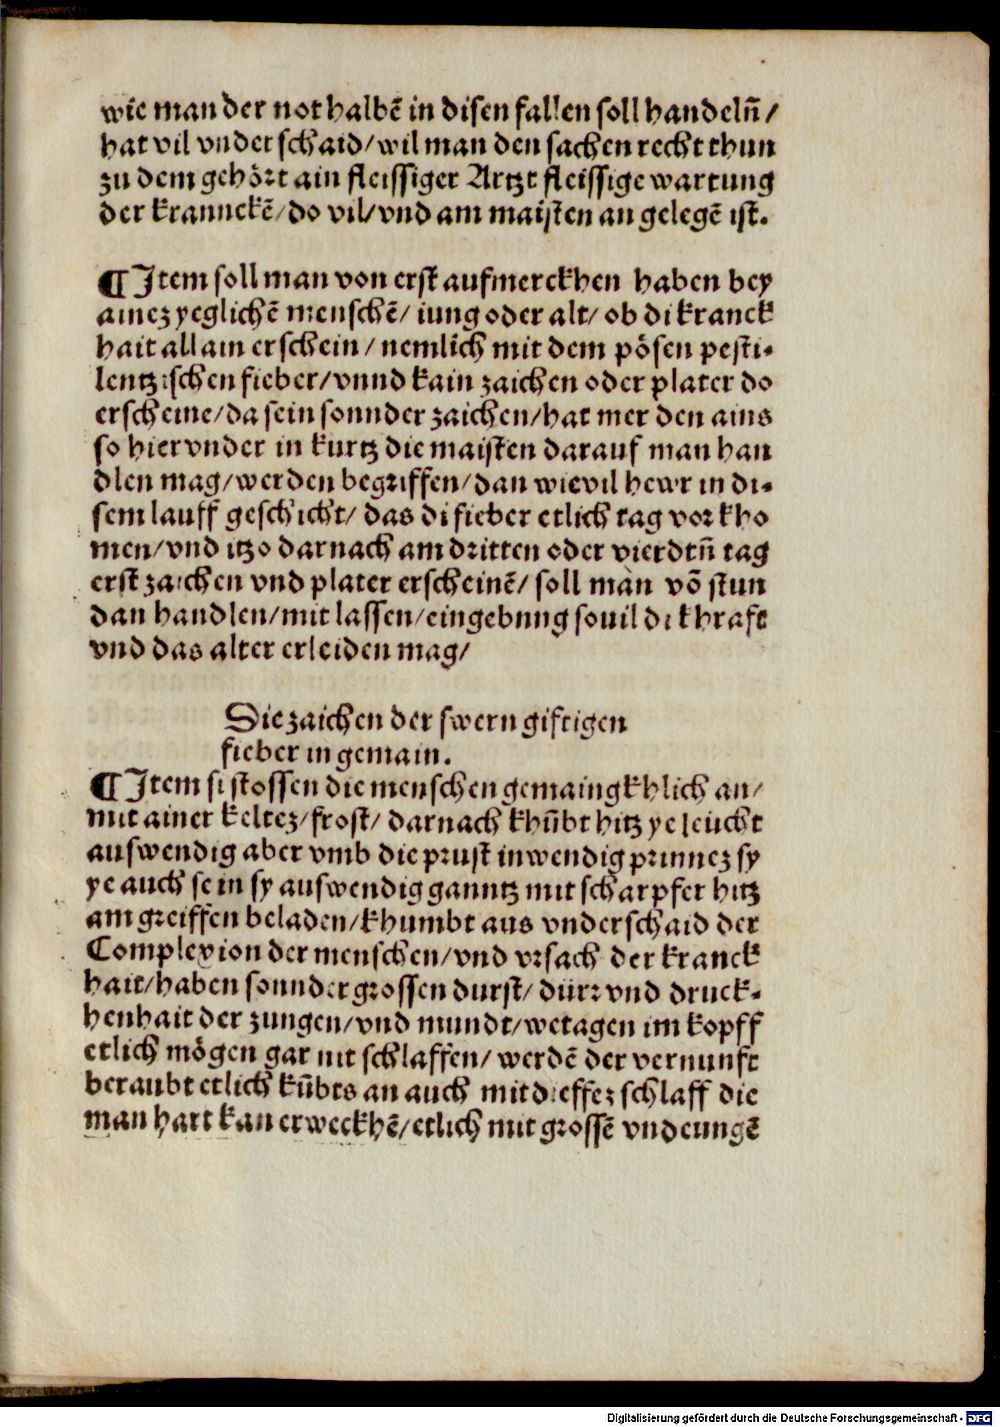 wie man der not halbē in disen fallen soll handeln̄/
hat vil vnderschaid/wil man den sachen recht thun
zu dem gehört ain fleissiger Artzt fleissige wartung
der kranncke̅/do vil/vnd am maisten an gelegē ist.
¶Item soll man von erst aufmerckhen haben bey
ainez yeglichē menschē/ iung oder alt/ ob di kranck
hait allain erschein/ nemlich mit dem pösen pesti-
lentzischen fieber/vnnd kain zaichen oder plater do
erscheine/da sein sonnder zaichen/hat mer den ains
so hier vnder in kurtz die maisten darauf man han
dlen mag/werden begriffen/dan wievil hewr in di-
sem lauff geschicht/ das di fieber etlich tag vor kho
men/vnd itzo darnach am dritten oder vierdtn̄ tag
erst zaichen vnd plater erscheinē/ soll man vō stun
dan handlen/mit lassen/eingebung souil di khraft
vnd das alter erleiden mag/
Die zaichen der swern giftigen
fieber in gemain.
¶Item si stossen die menschen gemaingkhlich an/
mit ainer keltez/frost/ darnach khūbt hitz ye leucht
auswendig aber vmb die prust inwendig prinnez sy
ye auch sein sy auswendig ganntz mit scharpfer hitz
am greiffen beladen/khumbt aus vnderschaid der
Complexion der menschen/vnd vrsach der kranck
hait/haben sonnder grossen durst/ dürr vnd druck-
henhait der zungen/vnd mundt/wetagen im kopff
etlich mögen gar nit schlaffen/ werdē der vernunft
beraubt etlich kūbts an auch mit dieffez schlaff die
man hart kan erweckhē/etlich mit grossē vndeungē
Digitalisierung gefördert durch die Deutsche Forschungsgemeinschaft - DFG